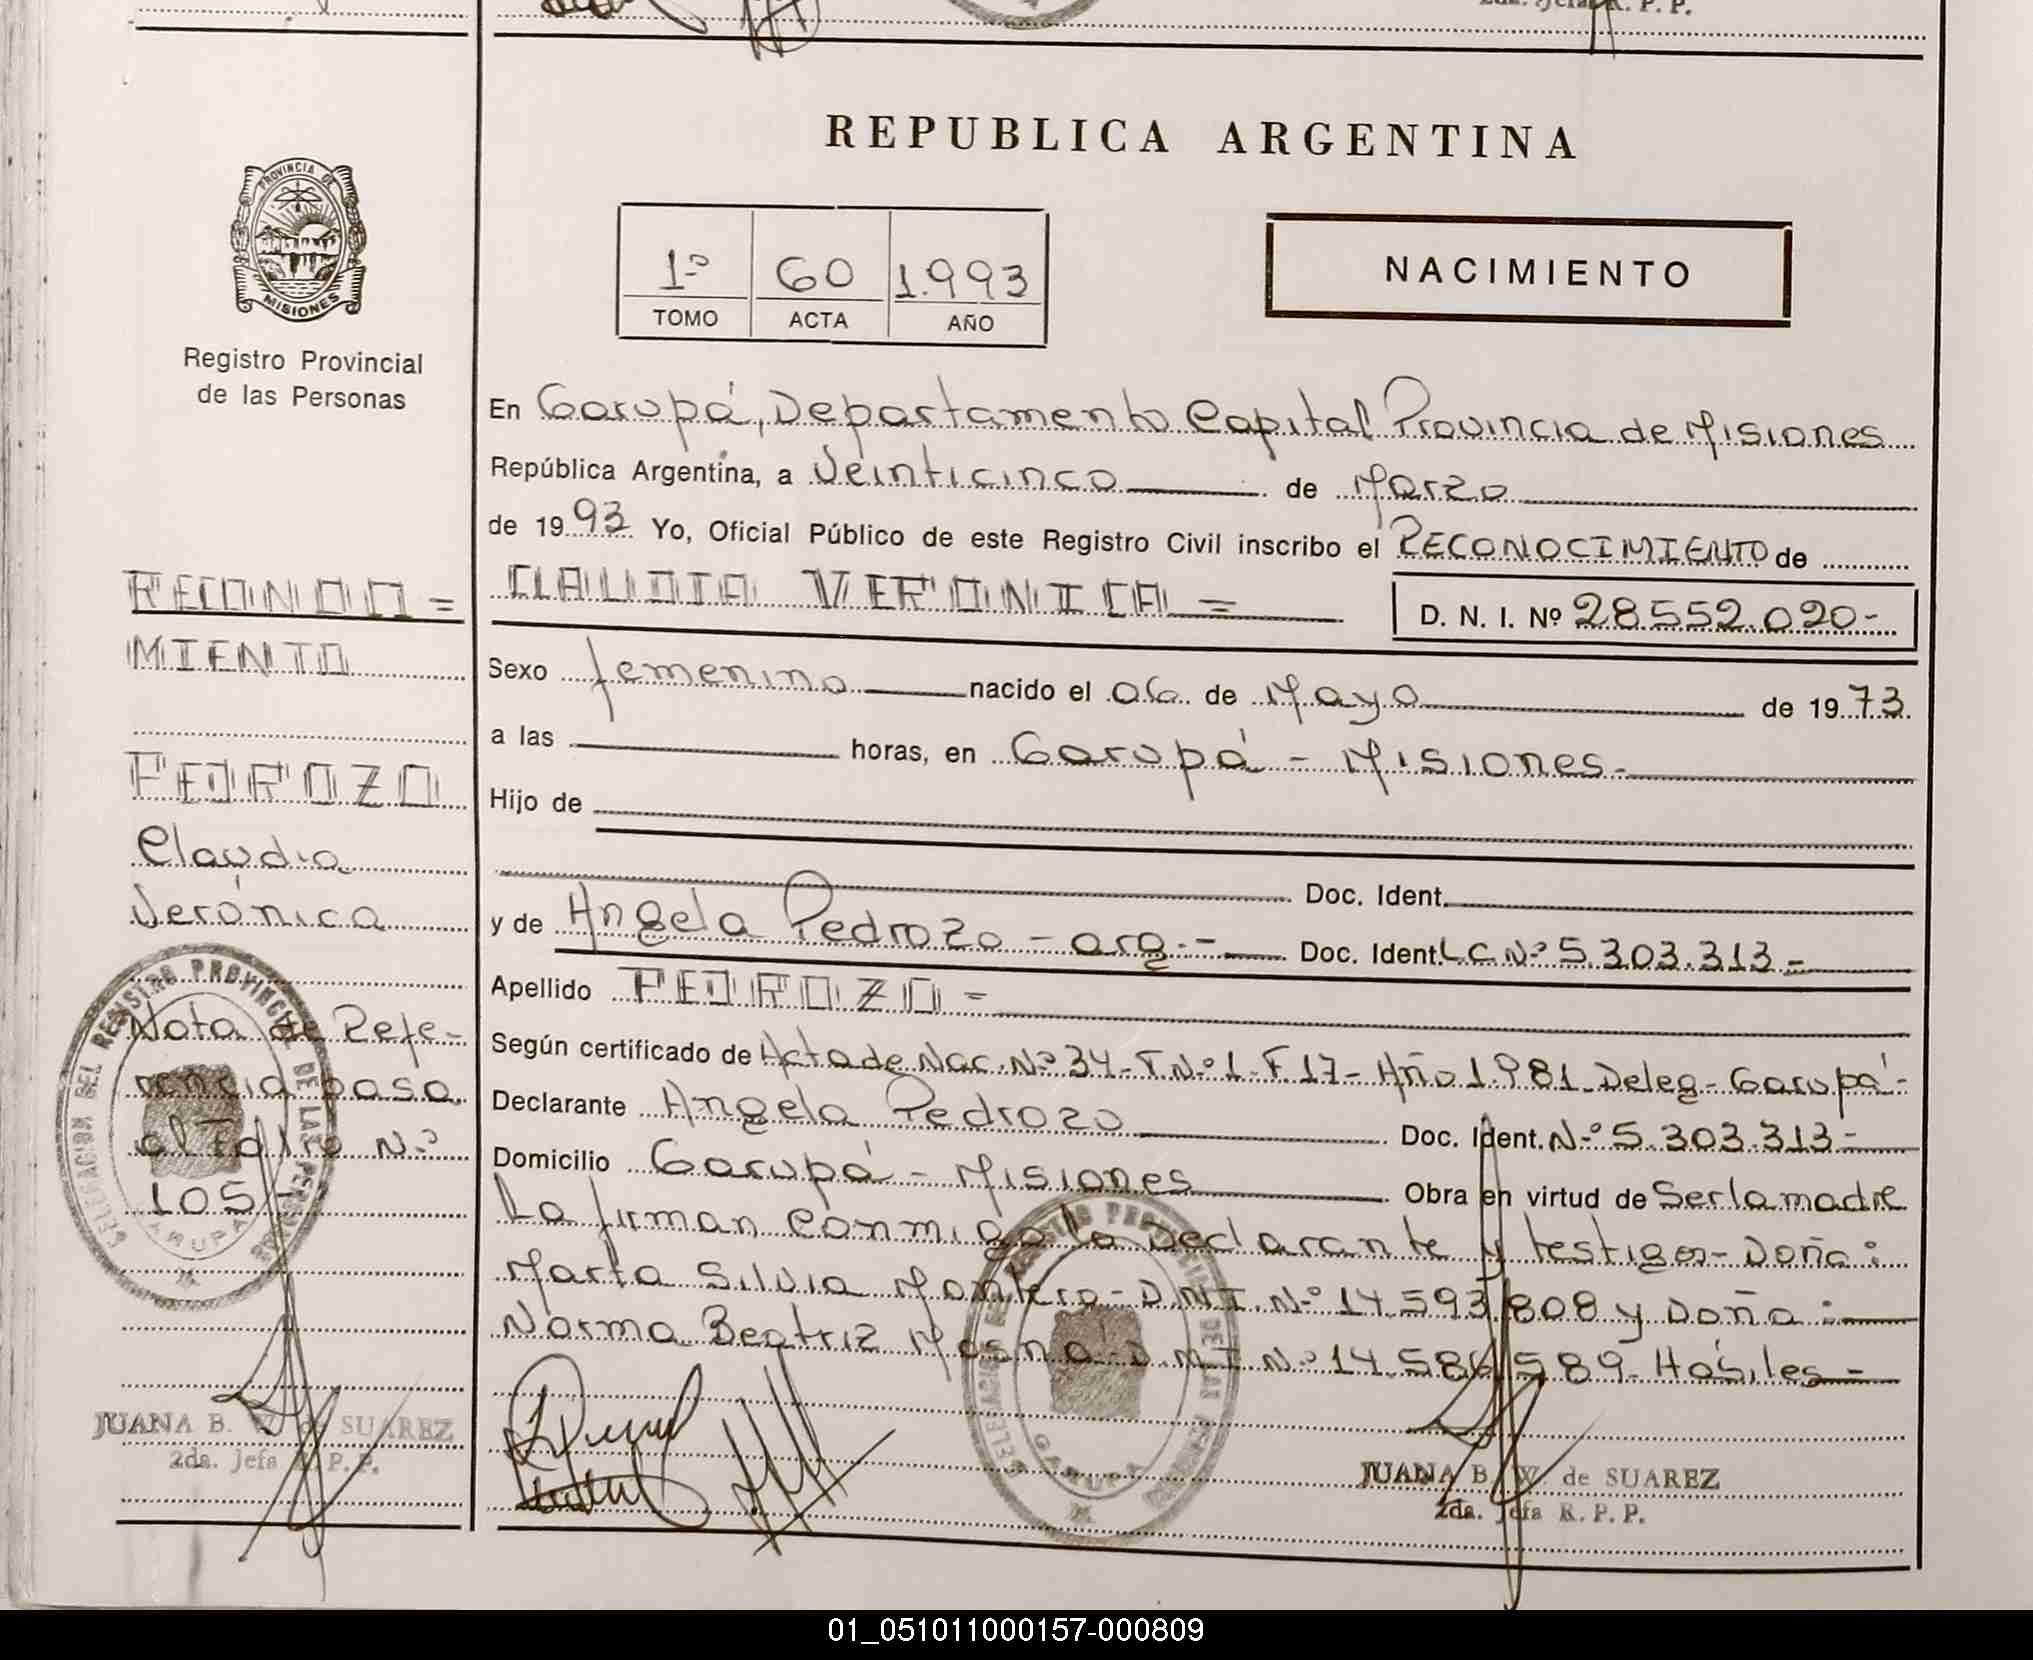 2da. Jefa R. P. P.
REPUBLICA ARGENTINA
PROVINCIA DE
MISIONES
Registro Provincial
de las Personas
1º 60 1.993
TOMO ACTA AÑO
NACIMIENTO
En Garupá, Departamento Capital Provincia de Misiones
República Argentina, a Veinticinco de Marzo
de 1993 Yo, Oficial Público de este Registro Civil inscribo el RECONOCIMIENTO de
CLAUDIA VERONICA =
D. N. I. Nº 28552.020-
Sexo femenino nacido el 06 de Mayo de 1973
a las horas, en Garupá - Misiones-
Hijo de
Doc. Ident.
y de Angela Pedrozo - arg.- Doc. Ident. L.C. Nº 5.303.313-
Apellido PEDROZO =
Según certificado de Acta de Nac. Nº 34- T. Nº 1- F. 17- Año 1.981- Deleg- Garupá-
Declarante Angela Pedrozo Doc. Ident. Nº 5.303.313-
Domicilio Garupá - Misiones Obra en virtud de Ser la madre
La firman conmigo la Declarante y testigos- Doña:
Marta Silvia Montero- D.N.I. Nº 14.593.808 y Doña:
Norma Beatriz D.N.I Nº 14.586.589- Hábiles-
JUANA B. W. de SUAREZ
2da. Jefa R. P. P.
RECONOCI=
MIENTO
PEDROZO
Claudia
Verónica
Nota de Refe-
rencia pasa
al Folio Nº
105
JUANA B. W. de SUAREZ
2da. Jefa R. P. P.
DELEGACION DEL REGISTRO PROVINCIAL DE LAS PERSONAS
GARUPA
DELEGACION DEL REGISTRO PROVINCIAL DE LAS PERSONAS
GARUPA
01_051011000157-000809